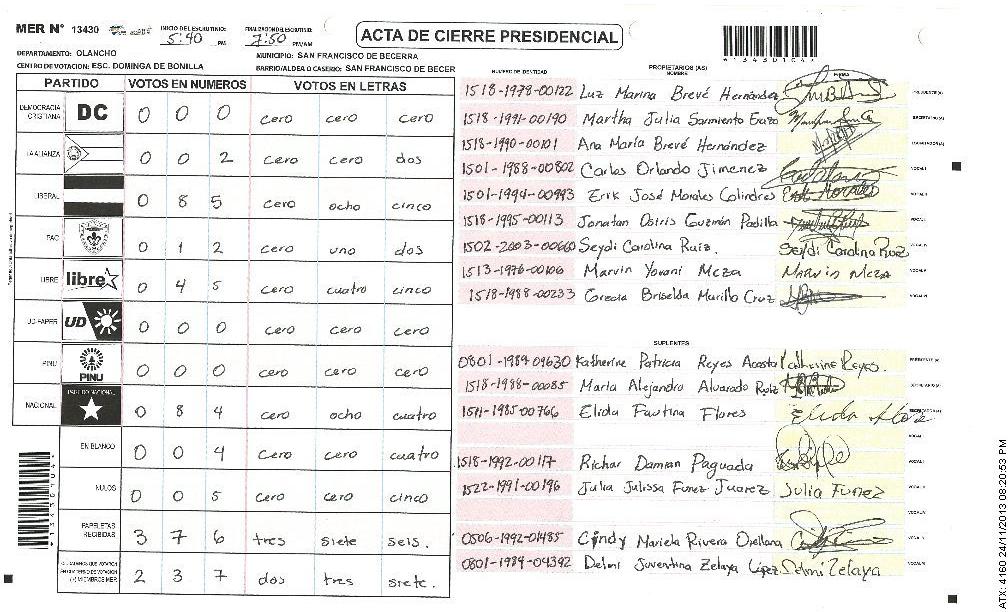 MER N° 13430 INICIO DEL ESCRUTINIO: 5:40 PM FINALIZACION DEL ESCRUTINIO: 7:50 PM/AM
ACTA DE CIERRE PRESIDENCIAL
DEPARTAMENTO: OLANCHO MUNICIPIO: SAN FRANCISCO DE BECERRA
CENTRO DE VOTACION: ESC. DOMINGA DE BONILLA BARRIO/ALDEA O CASERIO: SAN FRANCISCO DE BECER
PARTIDO VOTOS EN NUMEROS VOTOS EN LETRAS
DEMOCRACIA CRISTIANA DC 0 0 0 cero cero cero
LA ALIANZA 0 0 2 cero cero dos
LIBERAL 0 8 5 cero ocho cinco
PAC 0 1 2 cero uno dos
LIBRE libre 0 4 5 cero cuatro cinco
UD-FAPER UD 0 0 0 cero cero cero
PINU PINU 0 0 0 cero cero cero
NACIONAL PARTIDO NACIONAL 0 8 4 cero ocho cuatro
EN BLANCO 0 0 4 cero cero cuatro
NULOS 0 0 5 cero cero cinco
PAPELETAS RECIBIDAS 3 7 6 tres siete seis.
CIUDADANOS QUE VOTARON EN CUADERNO DE VOTACION (+) MIEMBROS MER 2 3 7 dos tres siete.
NUMERO DE IDENTIDAD PROPIETARIOS (AS) NOMBRE FIRMA
1518-1978-00122 Luz Marina Brevé Hernández PRESIDENTE(A)
1518-1991-00190 Martha Julia Sarmiento Erazo SECRETARIO(A)
1518-1990-00101 Ana María Brevé Hernández ESCRUTADOR(A)
1501-1988-00802 Carlos Orlando Jimenez VOCAL I
1501-1994-00993 Erik José Morales Colindres Erik Morales VOCAL II
1518-1995-00113 Jonatan Osiris Guzmán Padilla
1502-2003-00660 Seydi Carolina Ruiz. Seydi Carolina Ruiz VOCAL IV
1513-1976-00106 Marvin Yovani Meza Marvin Meza VOCAL V
1518-1988-00233 Grecia Briselda Murillo Cruz VOCAL VI
SUPLENTES
0801-1984-09630 Katherine Patricia Reyes Acosta Katherine Reyes. PRESIDENTE(A)
1518-1988-00085 Marla Alejandro Alvarado Ruiz SECRETARIO(A)
1511-1985-00766 Elida Faustina Flores Elida ESCRUTADOR(A)
VOCAL I
1518-1992-00117 Richar Damian Paguada
1522-1991-00196 Julia Julissa Funez Juarez Julia Funez
0506-1992-01485 Cindy Mariela Rivera Orellana
0801-1984-04392 Delmi Juventina Zelaya López Delmi Zelaya VOCAL VI
*13430104*
ATX: 4160 24/11/2013 08:20:53 PM